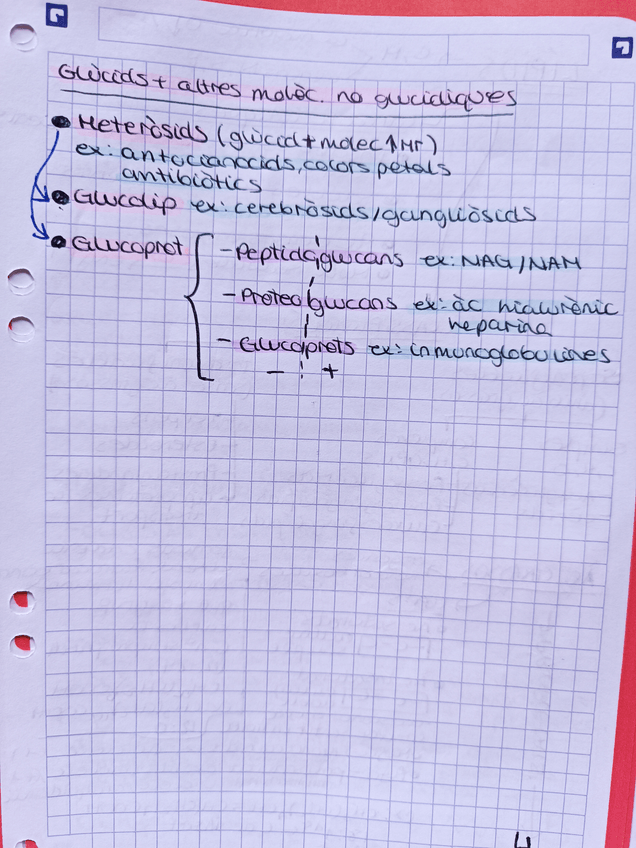 Glúcids + altres molèc. no glucídiques
Heteròsids (glúcid + molec ↑Mr)
ex: antocianòcids, colors petals
antibiòtics
Glucolip ex: cerebròsids/gangliòsids
Glucoprot
- Peptidoglucans ex: NAG/NAM
- Proteoglucans ex: àc hialurònic
heparina
- Glucoprots ex: inmunoglobulines
- +
4